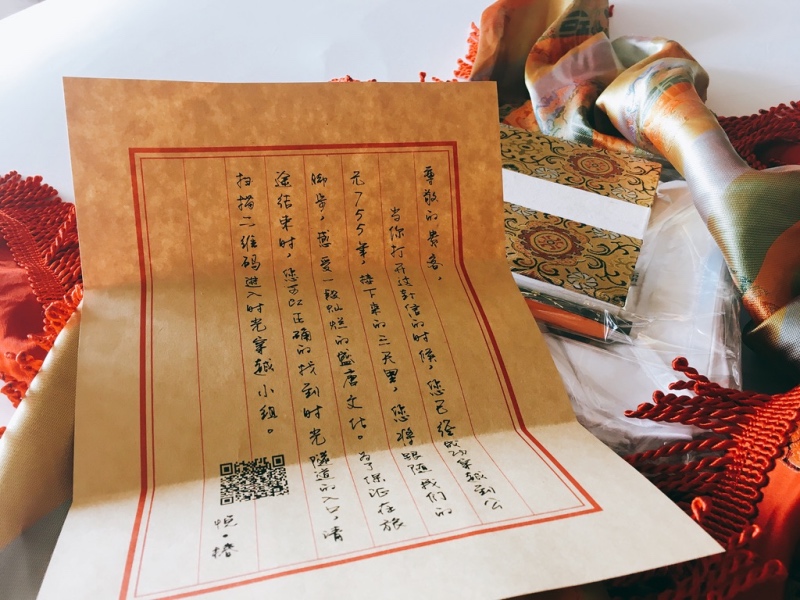 尊敬的贵客，
当你打开这封信的时候，您已经成功穿越到公
元755年，接下来的三天里，您将跟随我们的
脚步，感受一段灿烂的盛唐文化。为了保证在旅
途结束时，您可以正确的找到时光隧道的入口，请
扫描二维码进入时光穿越小组。